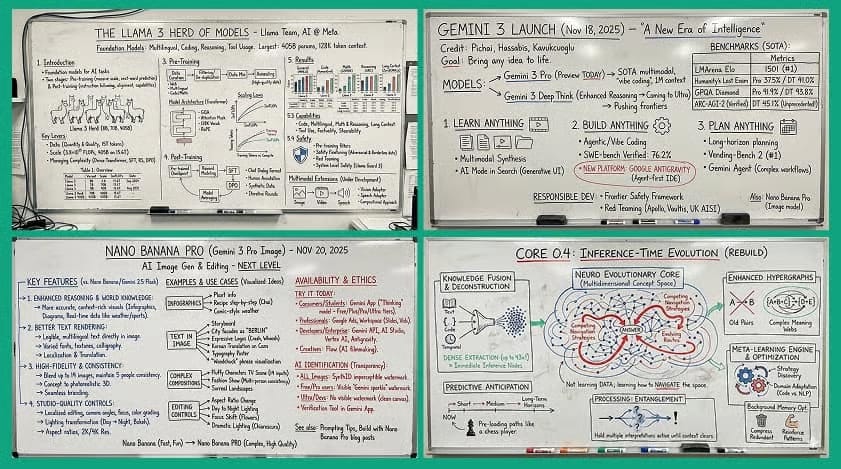 THE LLAMA 3 HERD OF MODELS - Llama Team, AI @ Meta
Foundation Models: Multilingual, Coding, Reasoning, Tool Usage. Largest: 405B params, 128K token context.
1. Introduction
• Foundation models for AI tasks
Llama 3 Herd (8B, 70B, 405B)
Key Levers
• Managing Complexity (Dense Transformer, SFT, RS, DPO)
Table 1: Overview
3. Pre-Training
Data Mix
Annealing
Model Architecture (Transformer)
• GQA
• Attention Mask
• 128K Vocab
• RoPE
Scaling Laws
4. Post-Training
Reward Modeling
SFT
DPO
Model Averaging
• Chat Dialog Format
• Human Annotation
• Synthetic Data
• Iterative Rounds
5. Results
5.3 Capabilities
• Code, Multilingual, Math & Reasoning, Long Context,
Tool Use, Factuality, Steerability
5.4 Safety
• Pre-training Filters
• Safety Finetuning (Adversarial & Borderline data)
• Red Teaming
• System Level Safety (Llama Guard 3)
Multimodal Extensions (Under Development)
Image
Video
Speech
• Vision Adapter
• Speech Adapter
• Compositional Approach
GEMINI 3 LAUNCH (Nov 18, 2025) — "A New Era of Intelligence"
Credit: Pichai, Hassabis, Kavukcuoglu
Goal: Bring any idea to life.
MODELS:
Gemini 3 Pro (Preview TODAY) → SOTA multimodal,
"vibe coding", 1M context
Gemini 3 Deep Think (Enhanced Reasoning → Coming to Ultra)
→ Pushing frontiers
BENCHMARKS (SOTA):
Metrics
LMArena Elo 1501 (#1)
Humanity's Last Exam Pro 37.5% / DT 41.0%
GPQA Diamond Pro 91.9% / DT 93.8%
ARC-AGI-2 (Verified) DT 45.1% (Unprecedented)
1. LEARN ANYTHING
• Multimodal Synthesis
• AI Mode in Search (Generative UI)
2. BUILD ANYTHING
• Agentic/Vibe Coding
• SWE-bench Verified: 76.2%
• NEW PLATFORM: GOOGLE ANTIGRAVITY
(Agent-first IDE)
3. PLAN ANYTHING
• Long-horizon planning
• Vending-Bench 2 (#1)
• Gemini Agent (Complex workflows)
RESPONSIBLE DEV:
• Frontier Safety Framework
• Red Teaming (Apollo, Vaultis, UK AISI)
Also: Nano Banana Pro
(Image model)
NANO BANANA PRO (Gemini 3 Pro Image) - NOV 20, 2025
AI Image Gen & Editing - NEXT LEVEL
KEY FEATURES (vs. Nano Banana/Gemini 2.5 Flash)
1. ENHANCED REASONING & WORLD KNOWLEDGE:
• More accurate, context-rich visuals (Infographics,
Diagrams, Real-time data like weather/sports).
2. BETTER TEXT RENDERING:
• Legible, multilingual text directly in image.
• Varied fonts, textures, calligraphy.
• Localization & Translation.
3. HIGH-FIDELITY & CONSISTENCY:
• Blend up to 14 images, maintain 5 people consistency.
• Concept to photorealistic 3D.
• Seamless branding.
4. STUDIO-QUALITY CONTROLS:
• Localized editing, camera angles, focus, color grading.
• Lighting transformation (Day → Night, Bokeh).
• Aspect ratios, 2K/4K Res.
EXAMPLES & USE CASES (Visualized Ideas)
INFOGRAPHICS
• Plant info
• Recipe step-by-step (Chai)
• Comic-style weather
TEXT IN IMAGE
• Storyboard
• City facades as "BERLIN"
• Expressive Logos (Crash, Whoosh)
• Korean Translation on Cans
• Typography Poster
• "Woodchuck" phrase visualization
COMPLEX COMPOSITIONS
• Fluffy Characters TV Scene (14 inputs)
• Fashion Show (Multi-person consistency)
• Surreal Landscapes
EDITING CONTROLS
• Aspect Ratio Change
• Day to Night Lighting
• Focus Shift (Flowers)
• Dramatic Lighting (Chiaroscuro)
AVAILABILITY & ETHICS
TRY IT TODAY:
• Consumers/Students: Gemini App ("Thinking"
model - Free/Plus/Pro/Ultra tiers).
• Professionals: Google Ads, Workspace (Slides, Vids).
• Developers/Enterprise: Gemini API, AI Studio,
Vertex AI, Antigravity.
• Creatives: Flow (AI filmmaking).
AI IDENTIFICATION (Transparency):
• ALL Images: SynthID imperceptible watermark.
• Free/Pro users: Visible "Gemini sparkle" watermark.
• Ultra/Devs: No visible watermark (clean canvas).
• Verification Tool in Gemini App.
See also: Prompting Tips, Build with Nano
Banana Pro blog posts
Nano Banana (Fast, Fun) → Nano Banana PRO (Complex, High Quality)
CORE 0.4: INFERENCE-TIME EVOLUTION (REBUILD)
KNOWLEDGE FUSION
& DECONSTRUCTION
Text
Code
Temporal
DENSE EXTRACTION (up to 93x!)
→ Immediate Inference Nodes
PREDICTIVE ANTICIPATION
Short → Medium → Long-Term Horizons
NOW
Pre-loading paths like
a chess player.
NEURO EVOLUTIONARY CORE
(Multidimensional Concept Space)
Competing Navigation Strategies
Competing Navigation Strategies
ANSWER
Evolving Routes
Not learning DATA; learning how to NAVIGATE the space.
PROCESSING: ENTANGLEMENT
Hold multiple interpretations active until context clears.
ENHANCED HYPERGRAPHS
Old Pairs
Complex Meaning Webs
META-LEARNING ENGINE
& OPTIMIZATION
Strategy Discovery
Domain Adaptation
(Code vs. NLP)
Background Memory Opt.
Compress Redundant
Reinforce Patterns